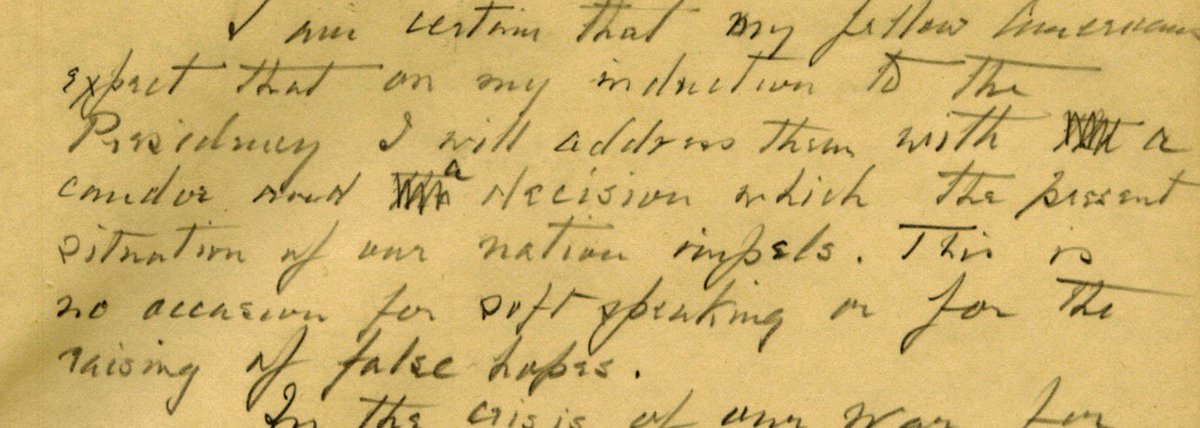 I am certain that my fellow Americans
expect that on my induction to the
Presidency I will address them with a
candor and a decision which the present
situation of our nation impels. This is
no occasion for soft speaking or for the
raising of false hopes.
In the crisis of our war for